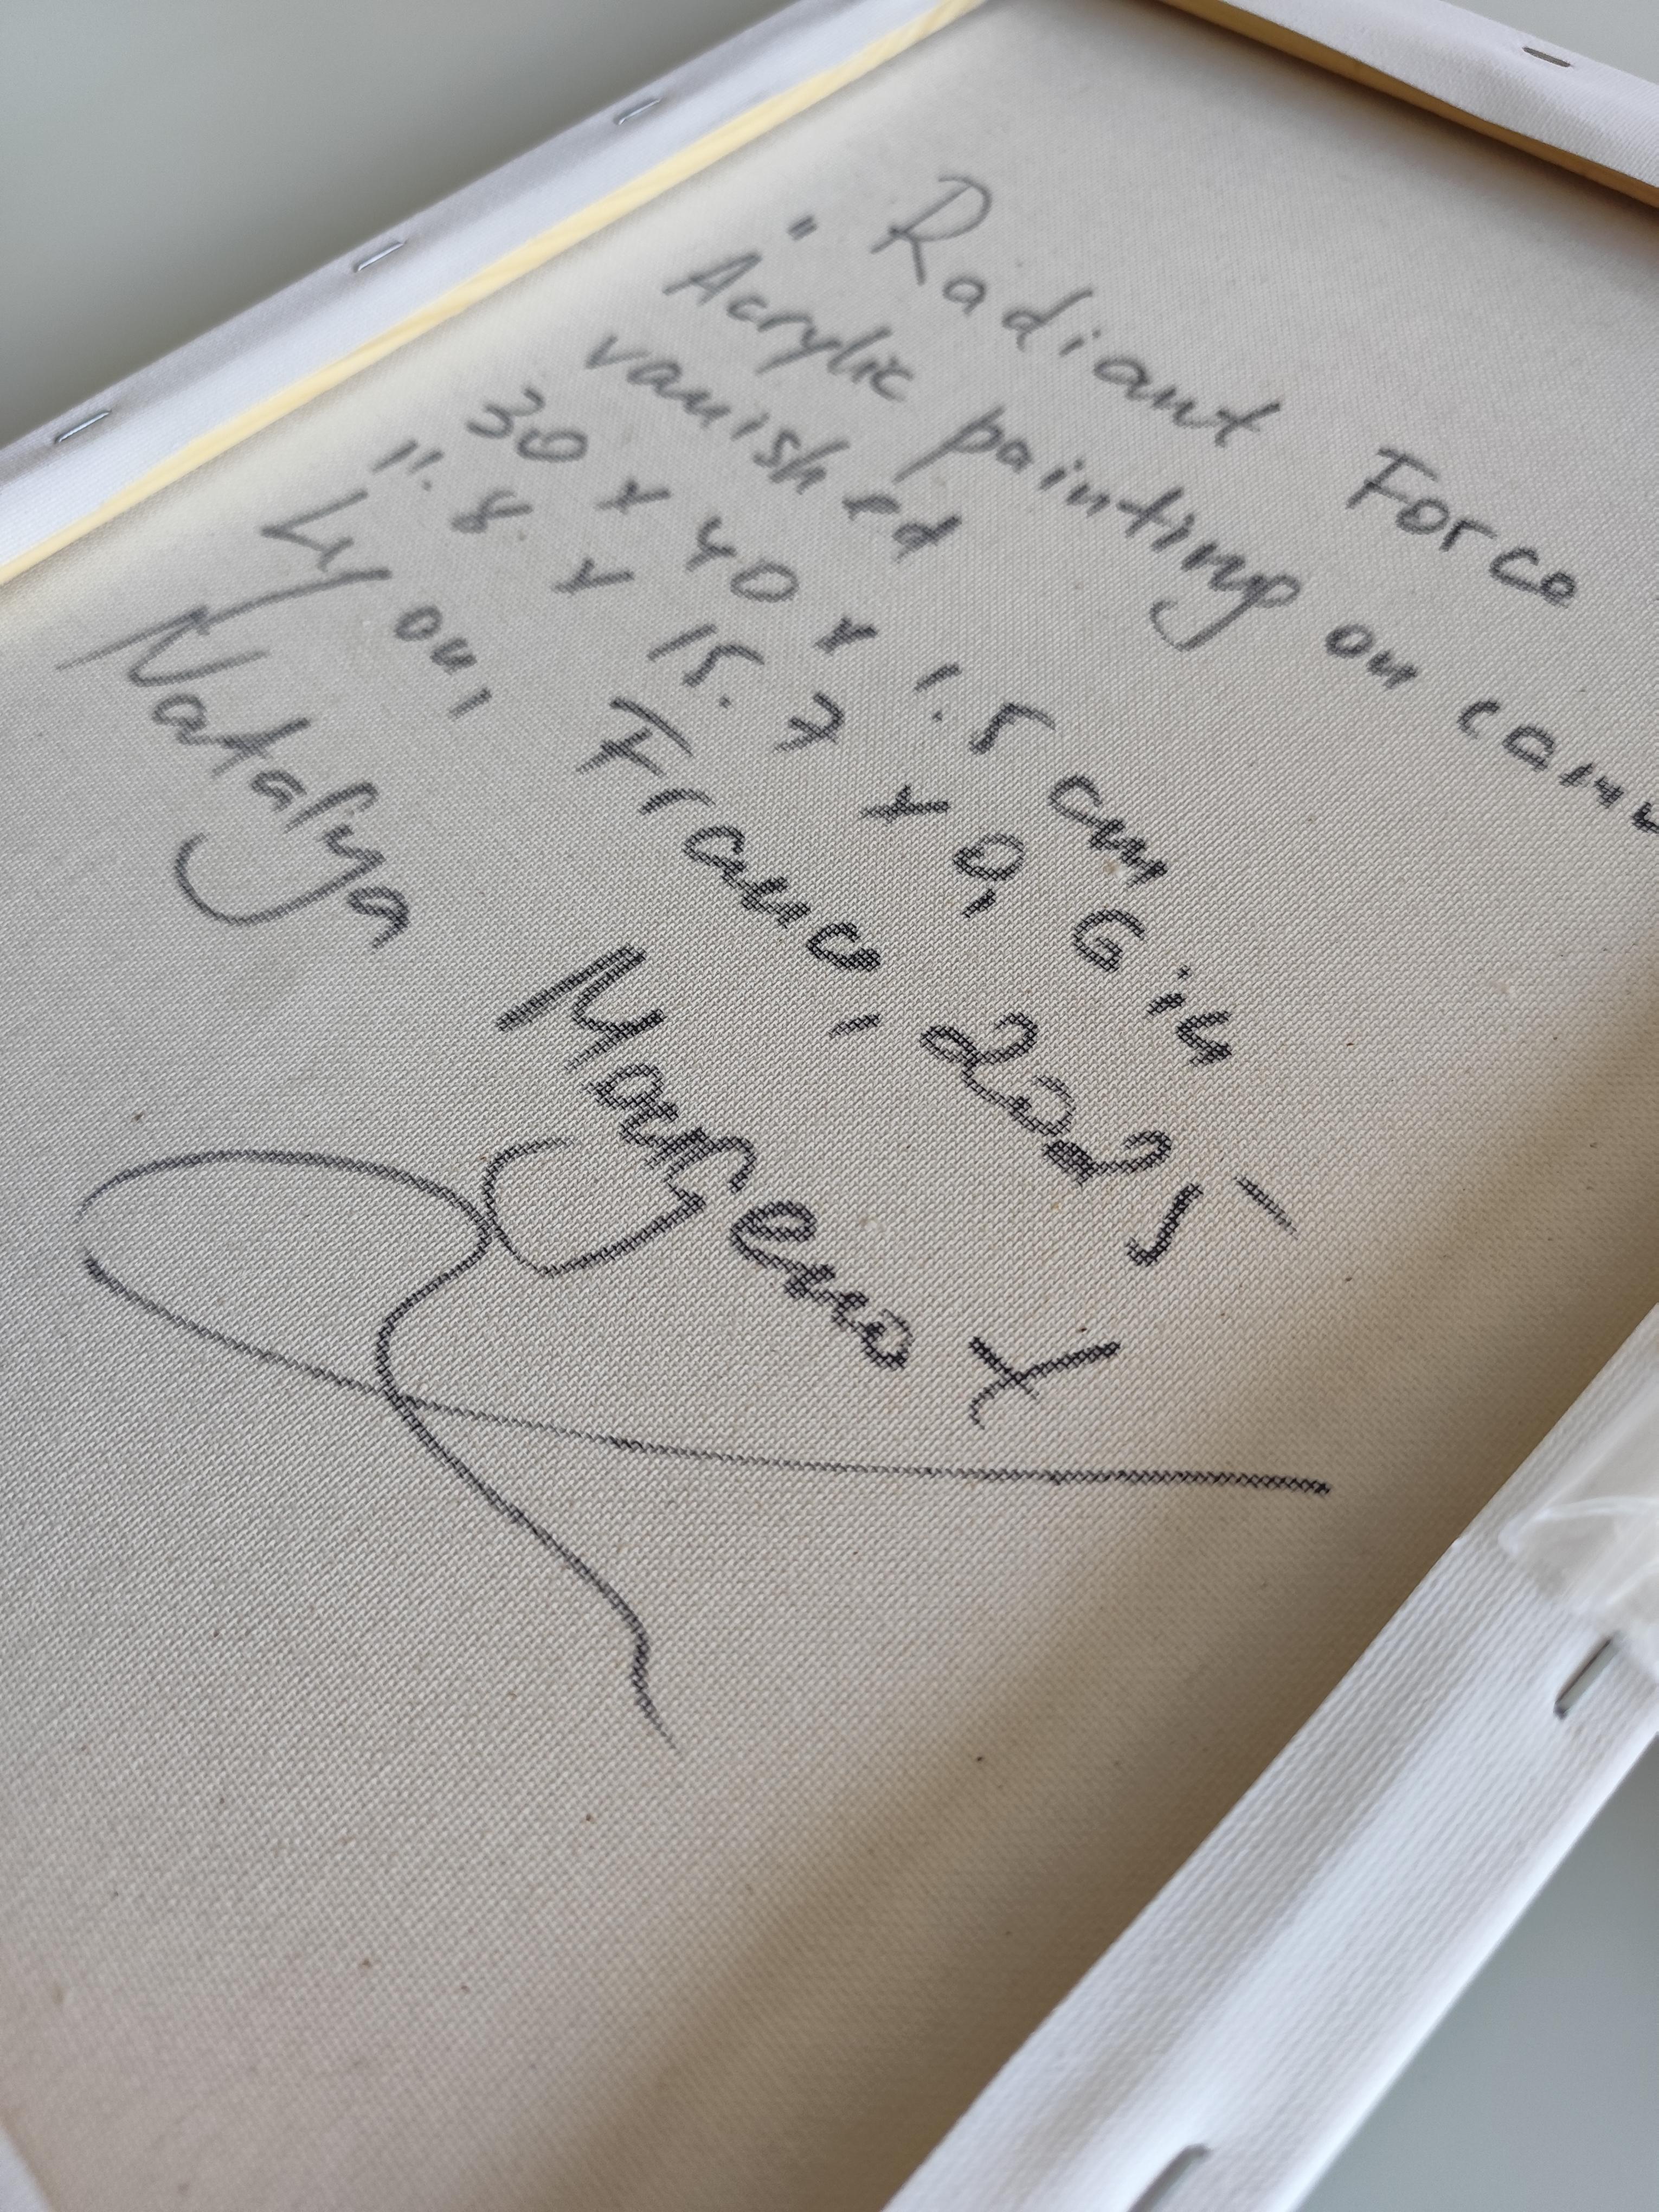 "Radiant Force
Acrylic painting on canv
vanished
30 x 40 x 1.5 cm
11.8 x 15.7 x 0,6 in
Lyon, France, 2025
Nataliya